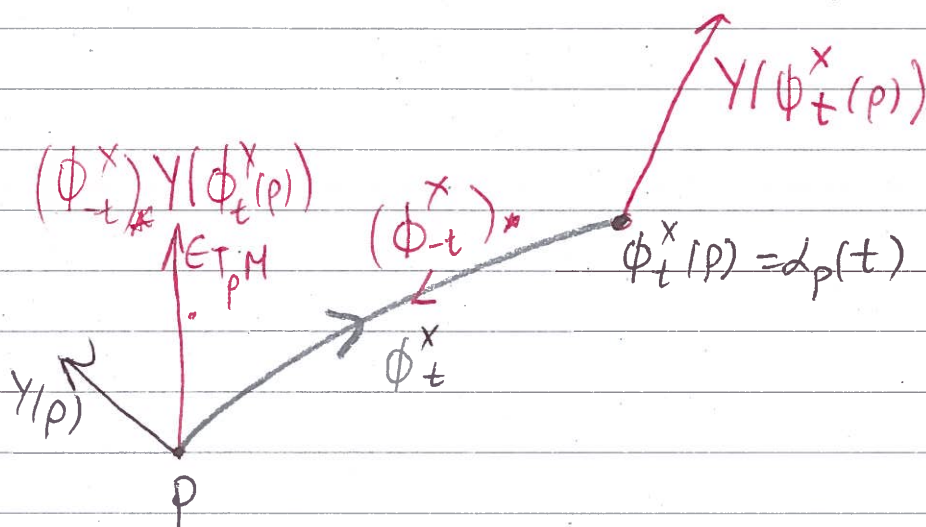 Y(ϕₜˣ(p))
(ϕ₋ₜˣ)⁎ Y(ϕₜˣ(p))
(ϕ₋ₜˣ)⁎
∈ TₚM
ϕₜˣ(p) = αₚ(t)
ϕₜˣ
Y(p)
p